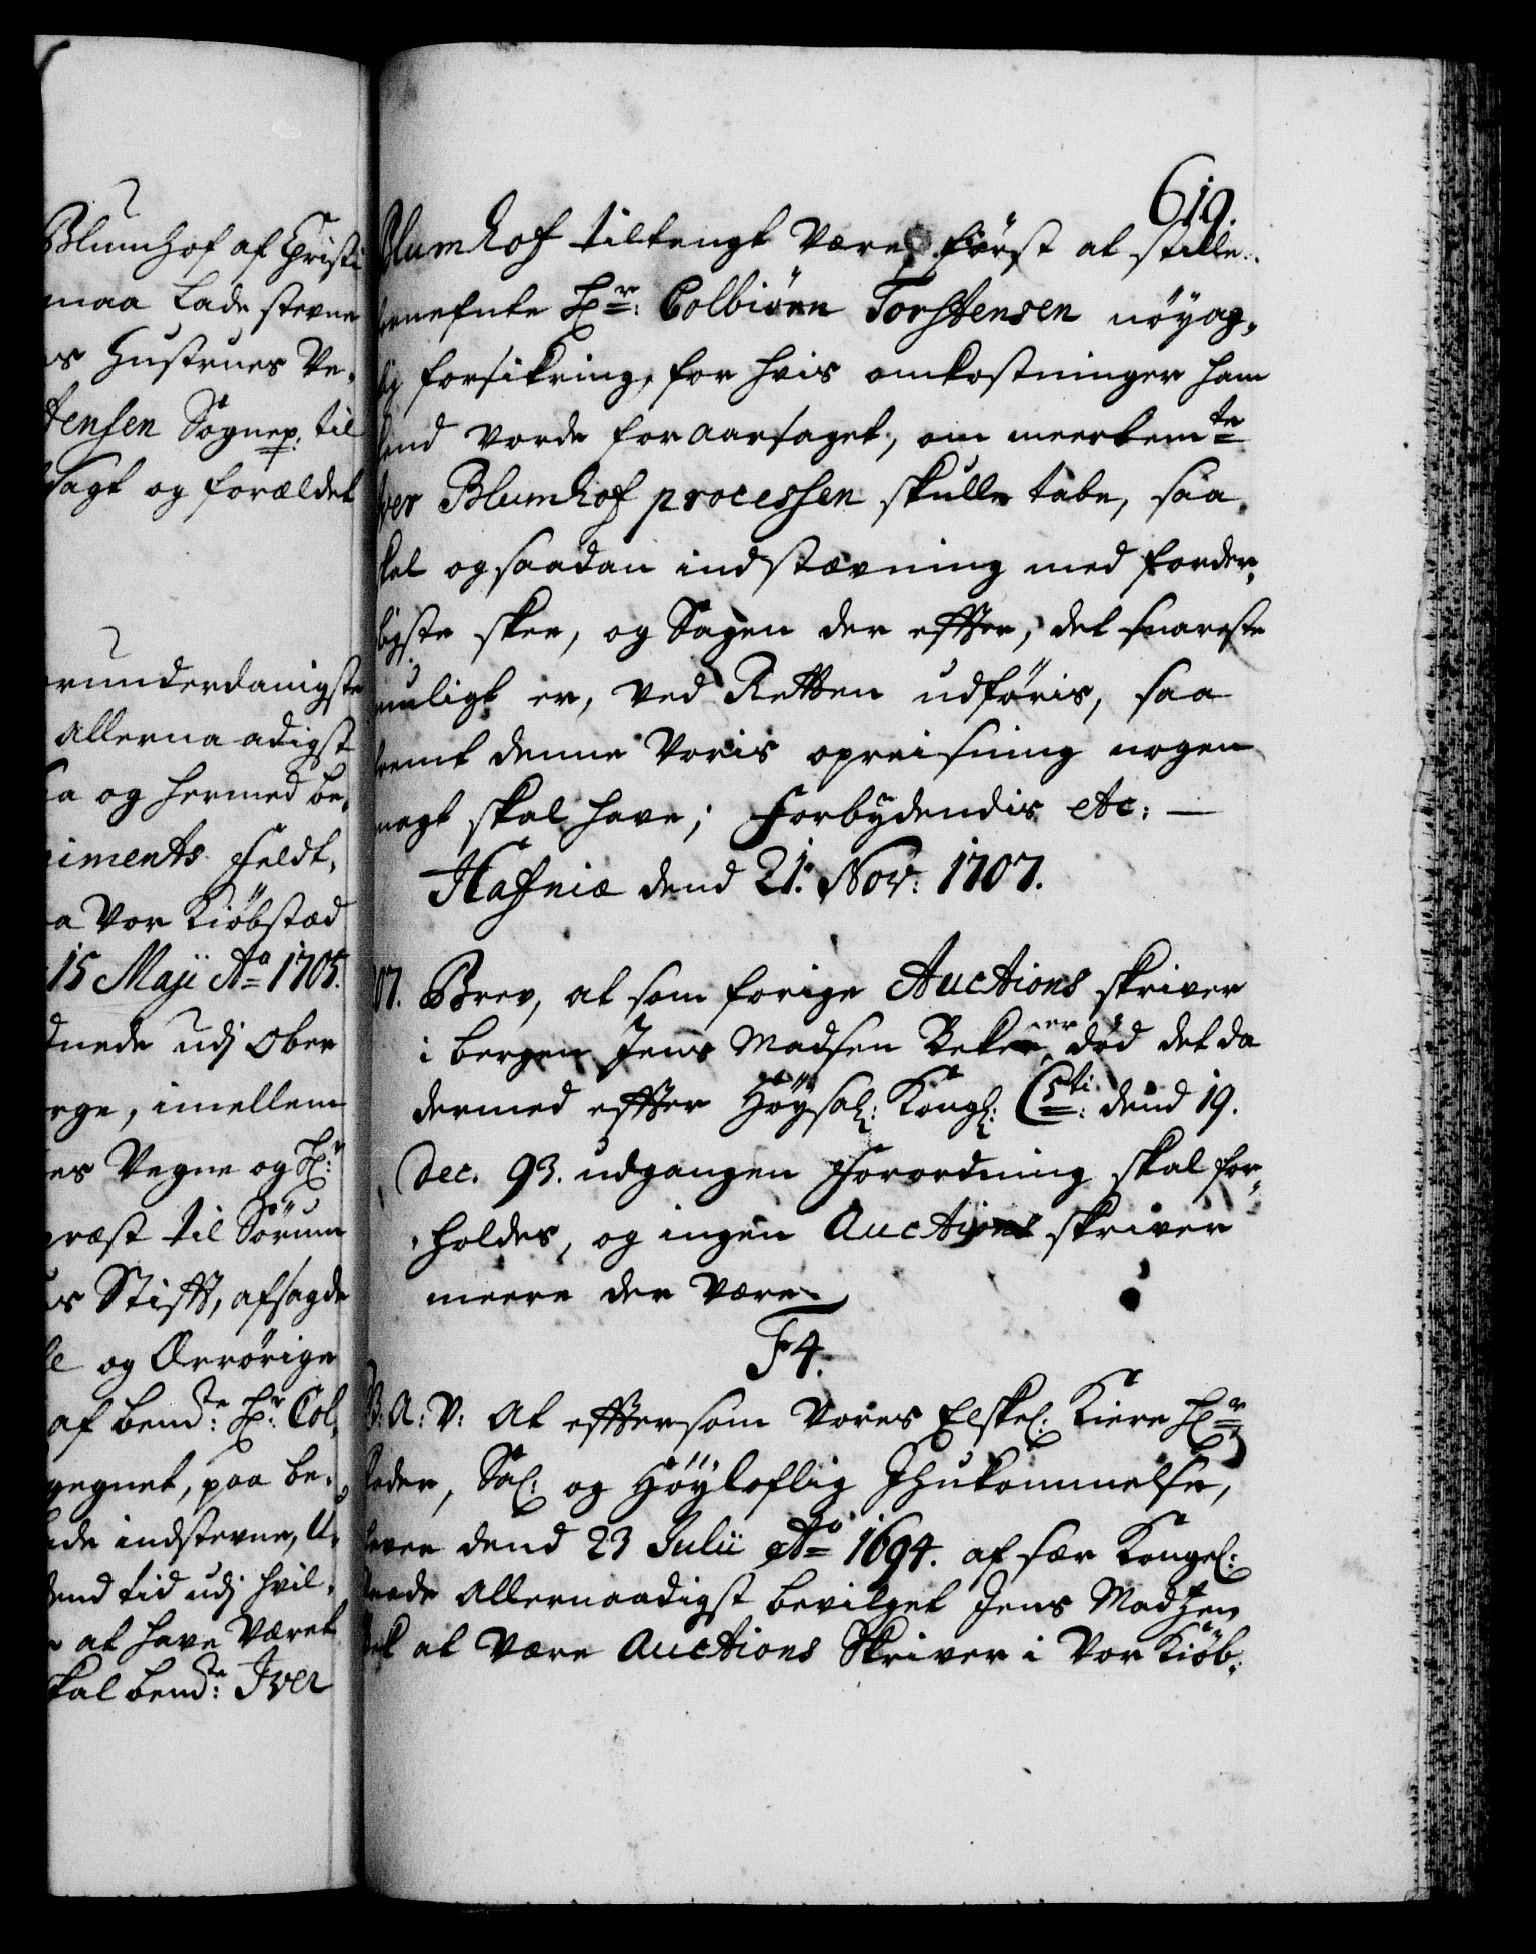 Blumhof af Christi
maa lade stevne
Hustrues Ve,
tensen Sognep: til
sagt og forældet
underdanigste
allernaadigst
og hermed be,
iments Feldt,
Vor Kiöbstæd
15 Maji Ao 1705.
udj Ober
imellem
Vegne og Hr:
præst til Sörum
Stift, afsagde
og Örrörige
af bemte: Hr: Col,
gegnet, paa be,
indstevne, U,
tid udj hvil,
at have Været
skal bemte: Iver
619.
Blumhof tiltengt Være, först at stille
Hr: Colbiörn Torstensen nöyag,
forsikring, for hvis omkostninger ham
Vorde foraarsaget, om meerbemte
Iver Blumhof processen skulle tabe, saa
skal og saadan indstævning med forder,
ligste skee, og Sagen der effter, det snareste
muligt er, Ved Retten udföris, saa
fremt denne Voris opreisning nogen
magt skal have; Forbydendis etc: —
Hafniæ dend 21. Nov: 1707.
07. Brev, at som forige Auctions skriver
i bergen Jens Madsen er död det da
dermed effter Höysal: Kongl: C 5ti: dend 19.
Dec. 93. udgangen Forordning skal for,
holdes, og ingen Auctions skriver
meere der Være.
F4.
G: A: V: At efftersom Vores Elskel: Kiere Hr
Fader, Sal: og Höyloflig Ihukommelse,
haver dend 23 Julii Ao 1694. af sær Kongel:
Naade Allernaadigst bevilget Jens Madzen
at Være Auctions Skriver i Vor Kiöb,